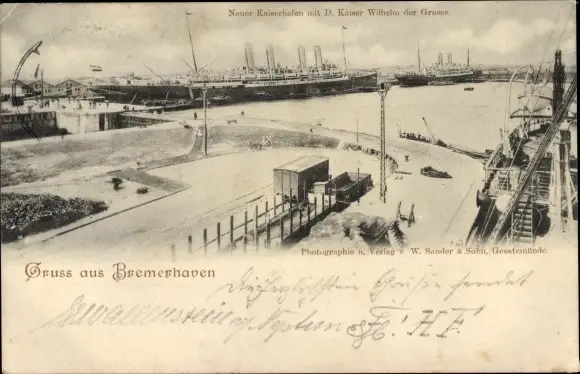 Neuer Kaiserhafen mit D. Kaiser Wilhelm der Grosse.
Photographie u. Verlag v. W. Sander & Sohn, Geestemünde.
Gruss aus Bremerhaven
Die herzlichsten Grüsse sendet